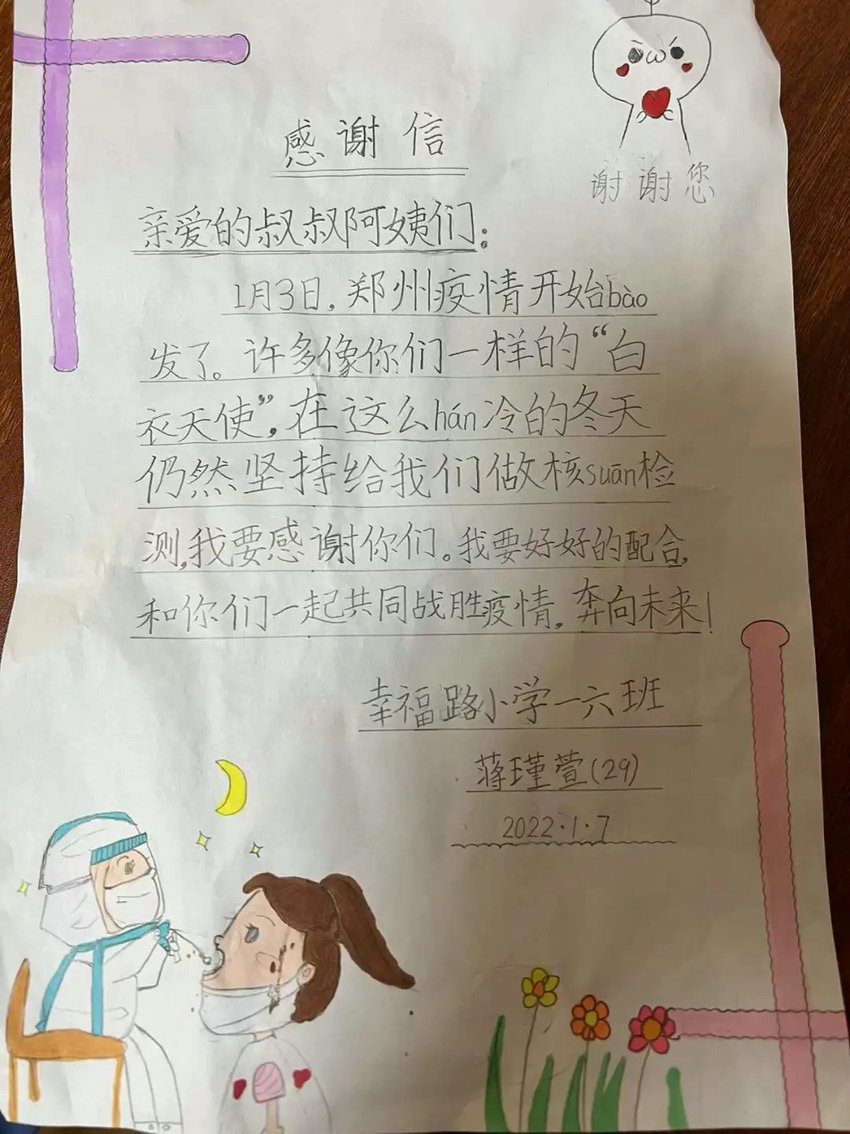 感谢信
谢谢您
亲爱的叔叔阿姨们：
1月3日，郑州疫情开始bào
发了。许多像你们一样的“白
衣天使”，在这么hán冷的冬天
仍然坚持给我们做核suān检
测，我要感谢你们。我要好好的配合，
和你们一起共同战胜疫情，奔向未来！
幸福路小学一六班
蒋瑾萱(29)
2022·1·7